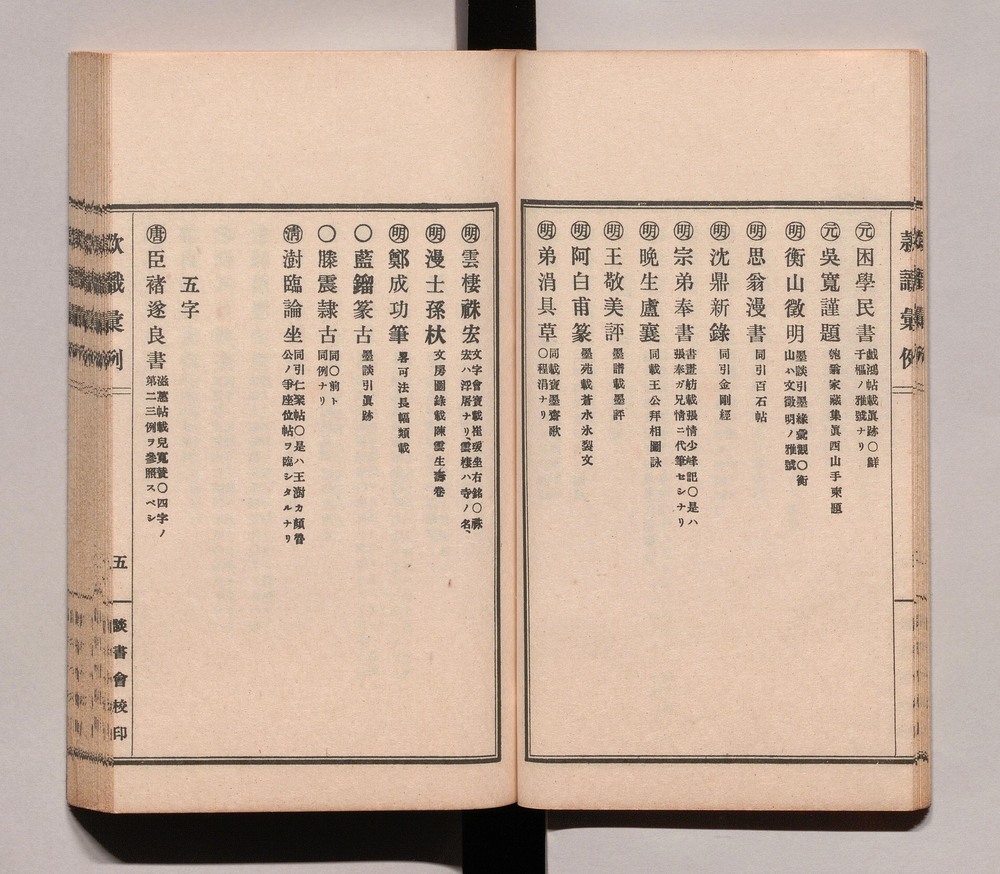 ㊎元 困學民書 戲鴻帖載眞跡〇鮮
于樞ノ雅號ナリ
元 吳寬謹題 匏翁家藏集眞西山手柬題
明 衡山徵明 墨談引墨緣彙觀〇衡
山ハ文徵明ノ雅號
明 思翁漫書 同引百石帖
明 沈鼎新錄 同引金剛經
明 宗弟奉書 書畫舫載張情少峰記〇是ハ
張奉ガ兄情ニ代筆セシナリ
明 晚生盧襄 同載王公拜相圖詠
明 王敬美評 墨譜載墨評
明 阿白甫篆 墨苑載蒼水氷裂文
明 弟涓具草 同載寶墨齋歌
〇程涓ナリ
明 雲棲祩宏 文字會寶載崔瑗坐右銘〇祩
宏ハ浮屠ナリ、雲棲ハ寺ノ名、
明 漫士孫杕 文房圖錄載陳雲生壽卷
明 鄭成功筆 畧可法長幅類載
〇 藍鏥篆古 墨談引眞跡
〇 滕震隷古 同〇前ト
同例ナリ
淸 澍臨論坐 同引仁聚帖〇是ハ王澍カ顏魯
公ノ爭座位帖ヲ臨シタルナリ
五字
唐 臣褚遂良書 滋蕙帖載兒寬贊〇四字ノ
第二三例ヲ參照スベシ
款識彙例
五
談書會校印